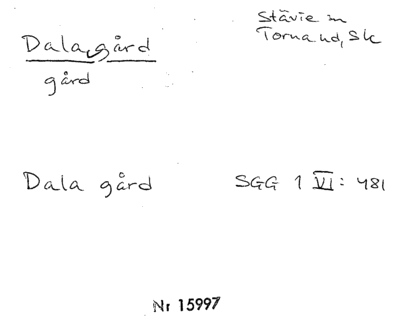 Stävie sn
Torna hd, Sk
Dala gård
gård
Dala gård SGG 1 VI: 481
Nr 15997